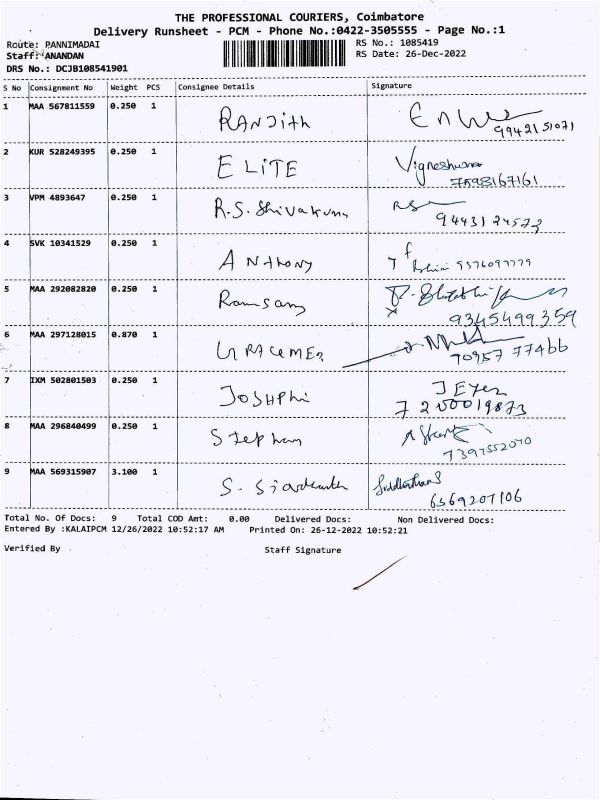 THE PROFESSIONAL COURIERS, Coimbatore
Delivery Runsheet - PCM - Phone No.:0422-3505555 - Page No.:1
Route: PANNIMADAI
RS No.: 1085419
Staff: ANANDAN
RS Date: 26-Dec-2022
DRS No.: DCJB108541901
S No Consignment No Weight PCS Consignee Details Signature
1 MAA 567811559 0.250 1 RANJith
9942151071
2 KUR 528249395 0.250 1 ELiTE Vigneshwar
7598167161
3 VPM 4893647 0.250 1 R.S. Shivakum RS
9443124573
4 SVK 10341529 0.250 1 ANthony
5 MAA 292082820 0.250 1 Ramsamy
9345499359
6 MAA 297128015 0.870 1
70957 77466
7 IXM 502801503 0.250 1 JOSHPhi
7200019873
8 MAA 296840499 0.250 1 Stephan
7397552070
9 MAA 569315907 3.100 1 S.
6369207106
Total No. Of Docs: 9 Total COD Amt: 0.00 Delivered Docs: Non Delivered Docs:
Entered By :KALAIPCM 12/26/2022 10:52:17 AM Printed On: 26-12-2022 10:52:21
Verified By Staff Signature